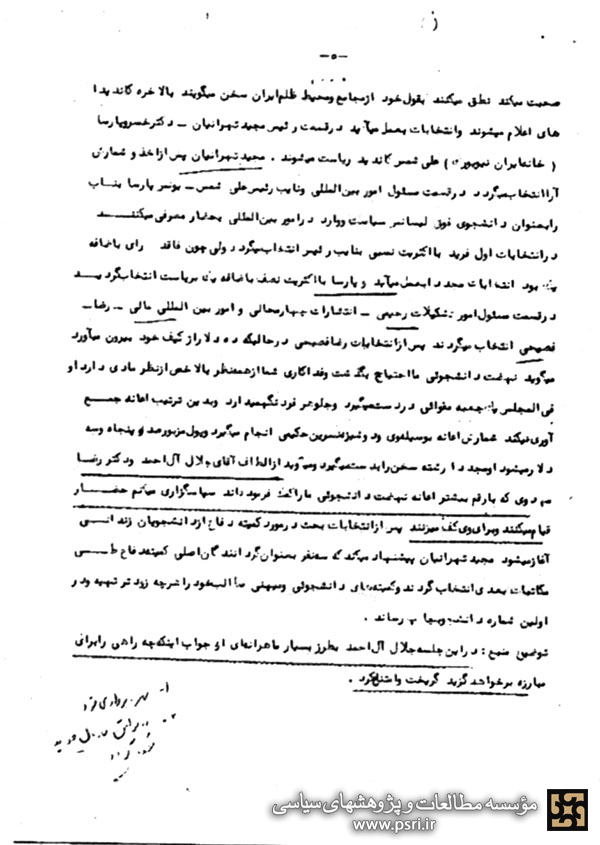 -۵-
صحبت میکند نطق میکنند بقول خود از مجامع ومحیط ظلم ایران سخن میگویند بالاخره کاندیدا
های اعلام میشوند وانتخابات بعمل میآید در قسمت رئیس مجید تهرانیان - دکتر خسرو پارسا
( خانه ایران نیویورک ) علی شمس کاندید ریاست میشوند . مجید تهرانیان پس از اخذ و شمارش
آرا انتخاب میگردد در قسمت مسئول امور بین المللی ونایب رئیس علی شمس - پارسا بناب
را بعنوان دانشجوی فوق لیسانس سیاست ووارد در امور بین المللی بحضار معرفی میکنند
در انتخابات اول فرید با اکثریت نسبی بنایب رئیس انتخاب میگردد ولی چون فاقد رای باضافه
بود انتخابات مجددا بعمل میآید و پارسا با اکثریت نصف باضافه یک بریاست انتخاب گردید
در قسمت مسئول امور تشکیلات رحیمی - انتشارات چهارمحالی و امور بین المللی مالی - رضا -
فصیحی انتخاب میگردند پس از انتخابات رضا فصیحی در حالیکه ده دلار از کیف خود بیرون میآورد
میگوید نهضت دانشجوئی ما احتیاج بگذشت وفداکاری شما از همه نظر بالاخص از نظر مادی دارد او
فی المجلس جعبه مقوائی در دست میگیرد وجلو هر فرد نگهمیدارد وبدین ترتیب اعانه جمع
آوری میکند شمارش اعانه بوسیله وی ودوشیزه نسرین حکیمی انجام میگیرد وپول مزبور صد و پنجاه وسه
دلار میشود او مجددا رشته سخن را بدست میگیرد ومیگوید از الطاف آقای جلال آل احمد ودکتر رضا
که با رقم بیشتر اعانه نهضت دانشجوئی ما را کمک فرموداند سپاسگزاری میکنم حضار
قیام میکنند وبرای وی کف میزنند پس از انتخابات بحث در مورد کمیته دفاع از دانشجویان زندانی
آغاز میشود مجید تهرانیان پیشنهاد میکند که سه نفر بعنوان گردانندگان اصلی کمیته دفاع طی
مکاتبات بعدی انتخاب گردند وکمیته های دانشجوئی ومیهنی مطالب خود را هرچه زودتر تهیه و در
اولین شماره دانشجو بچاپ برساند .
توضیح منبع : در این جلسه جلال آل احمد بطرز بسیار ماهرانه ای از جواب اینکه چه راهی را برای
مبارزه برخواهد گزید گریخت وامتناع کرد .
مؤسسه مطالعات و پژوهشهای سیاسی
www.psri.ir